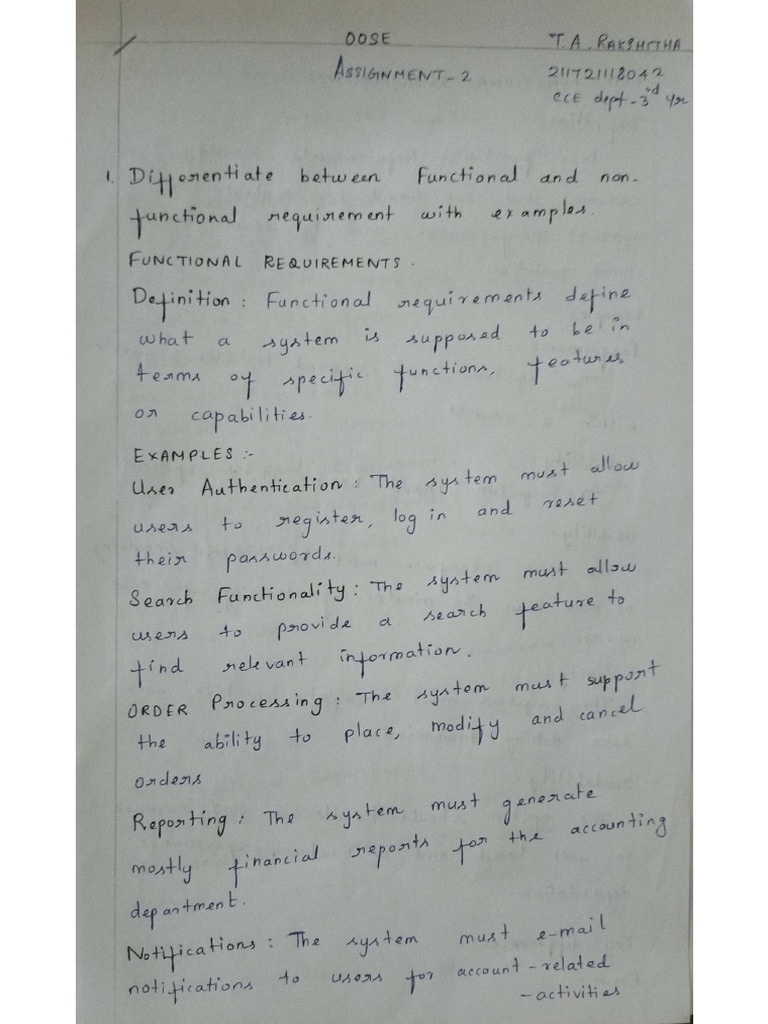 OOSE
T.A. RAKSHITHA
ASSIGNMENT-2
211721118042
CCE dept-3rd yr
1. Differentiate between Functional and non-
functional requirement with examples.
FUNCTIONAL REQUIREMENTS.
Definition: Functional requirements define
what a system is supposed to be in
terms of specific functions, features
or capabilities.
EXAMPLES:-
User Authentication: The system must allow
users to register, log in and reset
their passwords.
Search Functionality: The system must allow
users to provide a search feature to
find relevant information.
ORDER Processing: The system must support
the ability to place, modify and cancel
orders
Reporting: The system must generate
mostly financial reports for the accounting
department.
Notifications: The system must e-mail
notifications to users for account-related
-activities